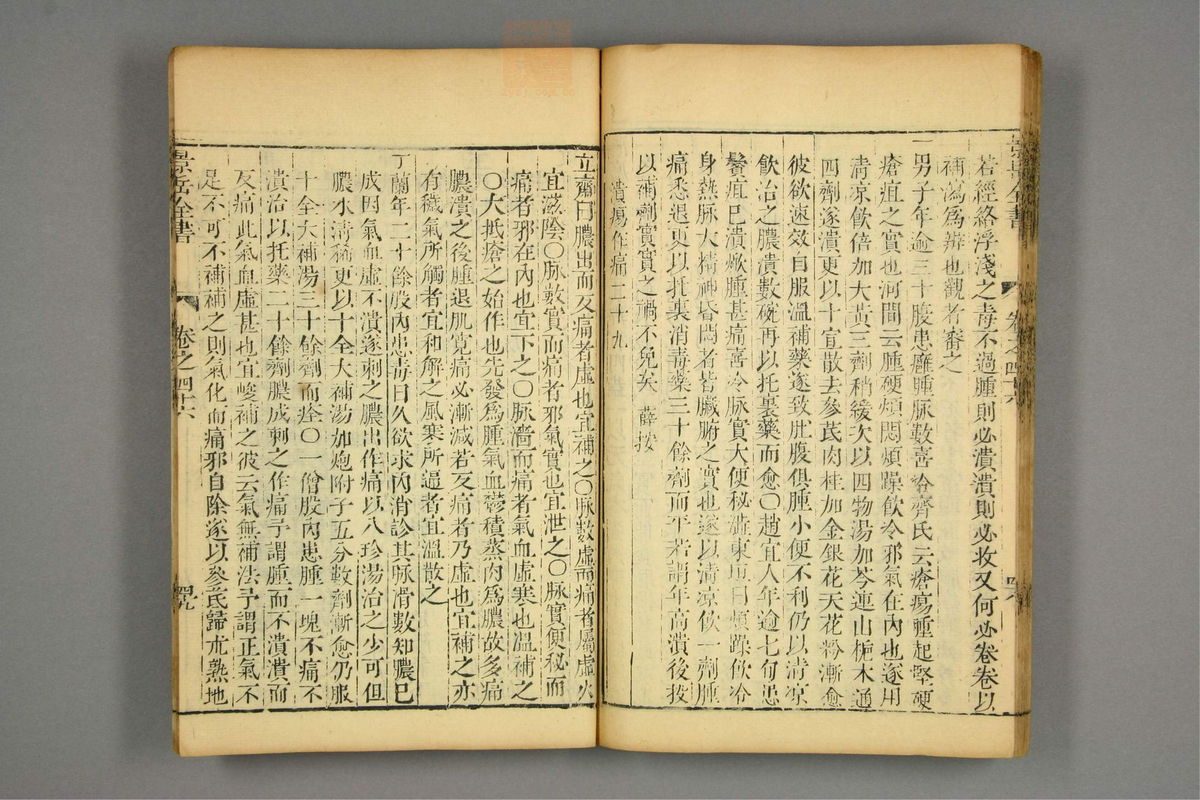 景岳全書 卷之四十六
若經絡浮淺之毒不過腫則必潰潰則必收又何必卷卷以
補瀉為辨也觀者審之
一男子年逾三十腹患癰腫脉數喜冷齊氏云瘡瘍腫起堅硬
瘡疽之實也河間云腫硬煩悶煩躁飲冷邪氣在內也遂用
清凉飲倍加大黃三劑稍緩次以四物湯加芩連山梔木通
四劑遂潰更以十宣散去參芪肉桂加金銀花天花粉漸愈
彼欲速效自服溫補藥遂致肚腹俱腫小便不利仍以清凉
飲治之膿潰數碗再以托裏藥而愈〇趙宜人年逾七旬患
鬢疽已潰焮腫甚痛喜冷脉實大便秘澀東垣曰煩躁飲冷
身熱脉大精神昏悶者皆臟腑之實也遂以清凉飲一劑腫
痛悉退更以托裏消毒藥三十餘劑而平若謂年高潰後投
以補劑實實之禍不免矣 薛按
潰瘍作痛二十九
立齋曰膿出而反痛者虛也宜補之〇脉數虛而痛者屬虛火
宜滋陰〇脉數實而痛者邪氣實也宜泄之〇脉實便秘而
痛者邪在內也宜下之〇脉濇而痛者氣血虛寒也溫補之
〇大抵瘡之始作也先發為腫氣血鬱積蒸肉為膿故多痛
膿潰之後腫退肌寬痛必漸減若反痛者乃虛也宜補之亦
有穢氣所觸者宜和解之風寒所逼者宜溫散之
丁蘭年二十餘股內患毒日久欲求內消診其脉滑數知膿已
成因氣血虛不潰遂刺之膿出作痛以八珍湯治之少可但
膿水清稀更以十全大補湯加炮附子五分數劑漸愈仍服
十全大補湯三十餘劑而痊〇一僧股內患腫一塊不痛不
潰治以托藥二十餘劑膿成刺之作痛予謂腫而不潰潰而
反痛此氣血虛甚也宜峻補之彼云氣無補法予謂正氣不
足不可不補補之則氣化而痛邪自除遂以參芪歸朮熟地
景岳全書 卷之四十六